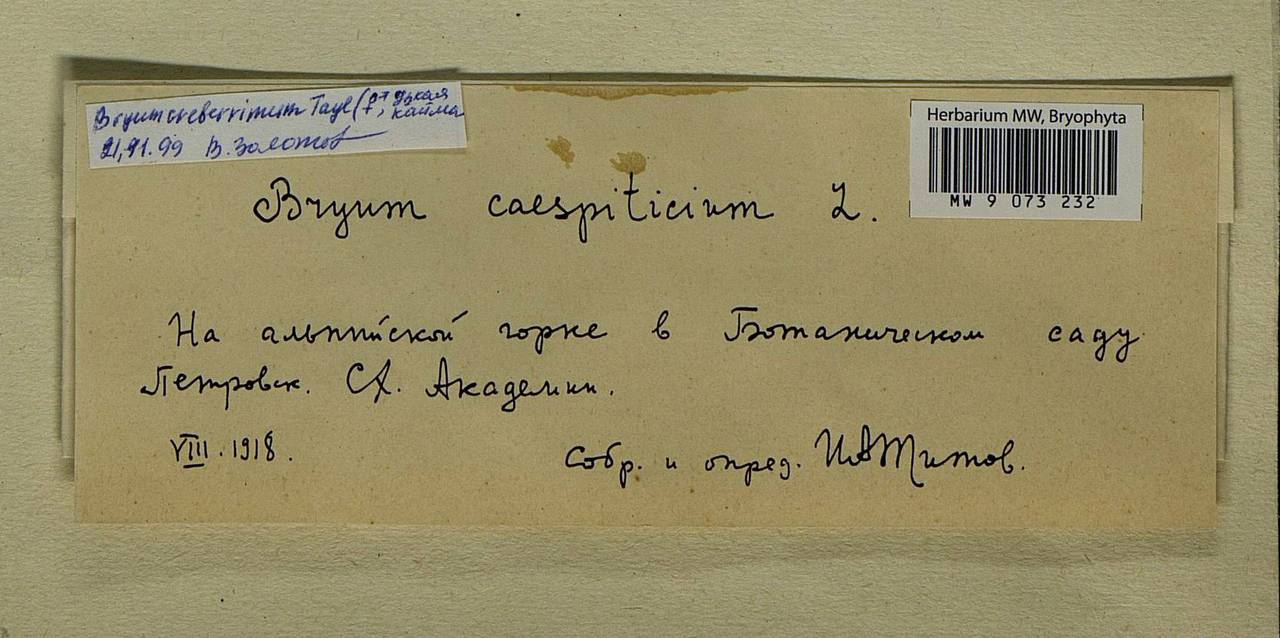 Bryum creberrimum Tayl (♂♀, узкая
кайма
21,91.99 В. Золотов
Herbarium MW, Bryophyta
MW 9 073 232
Bryum caespiticium L.
На альпийской горке в Ботаническом саду
Петровск. СХ. Академии.
VIII. 1918.
Собр. и опред. И.А. Титов.